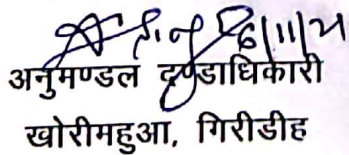 26/11/21
अनुमण्डल दण्डाधिकारी
खोरीमहुआ, गिरीडीह